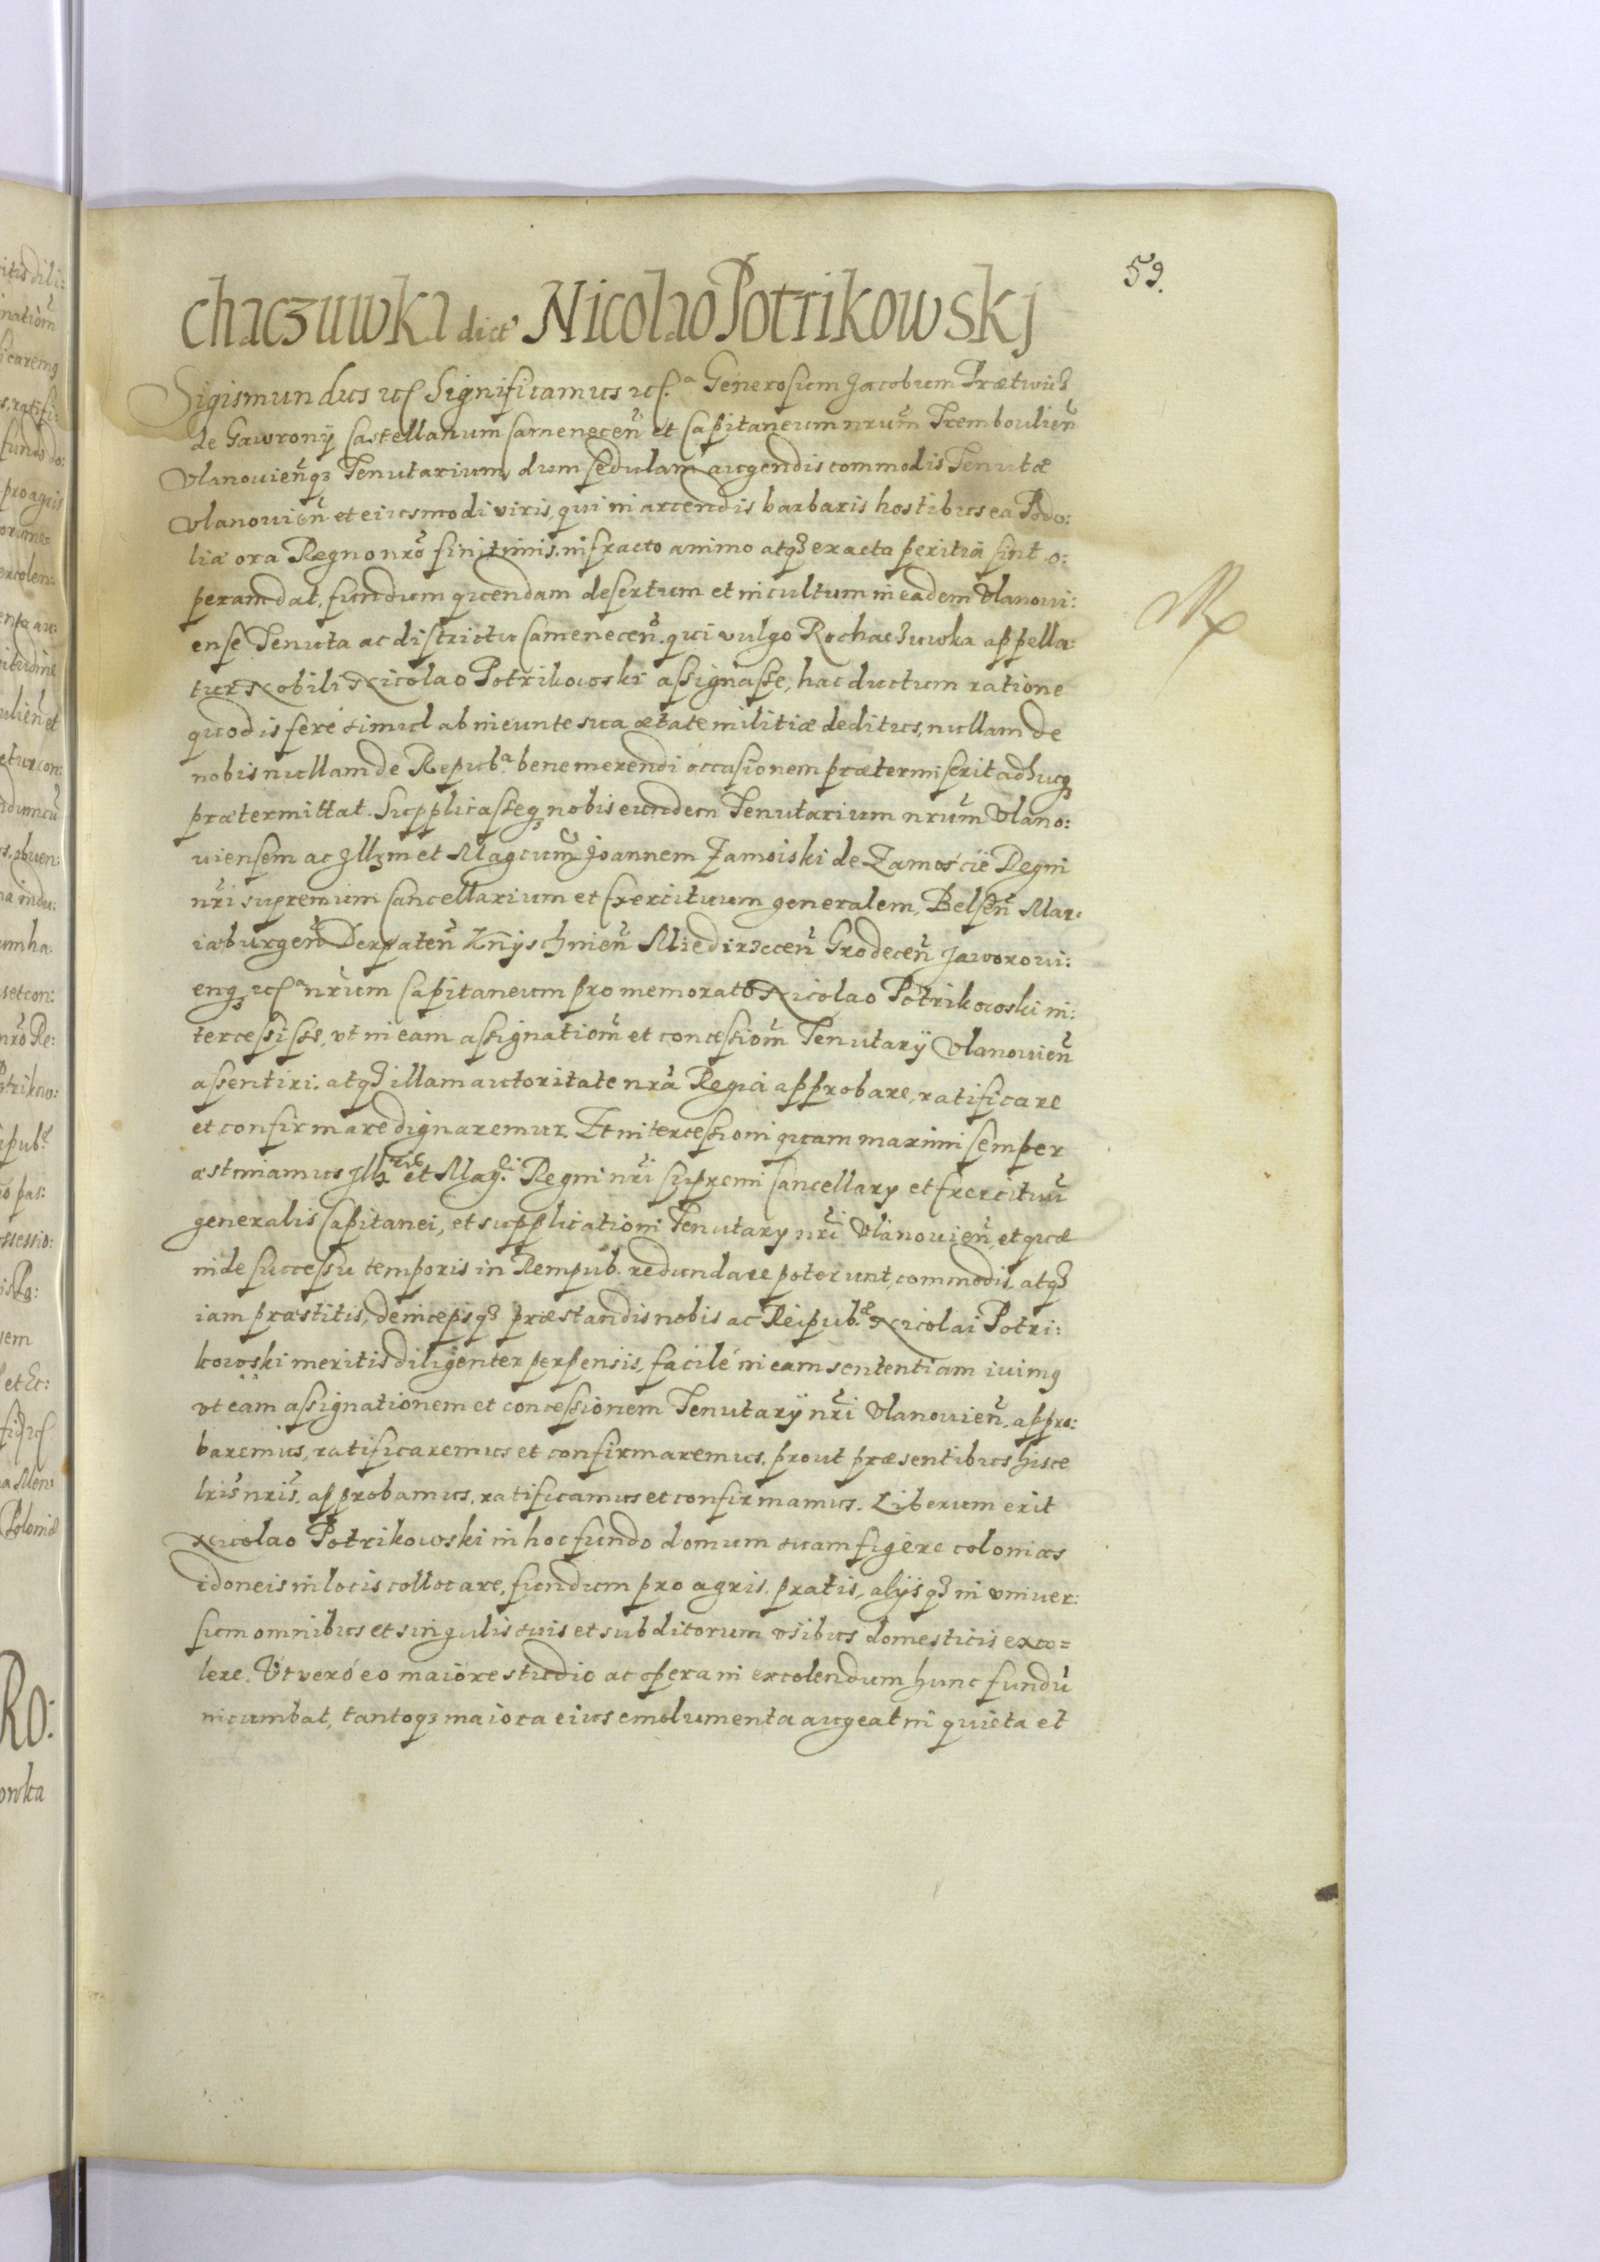 59.
chaczuwka dict' Nicolao Potrikowskj
Sigismundus etc Significamus etc.a Generosum Jacobum Prætwicz
de Gawrony Castellanum Camenecen̄ et Capitaneum nrum̄ Tremboulien̄
Vlanouien̄q3 Tenutarium, dum sedulam augendis commodis Tenutæ
Vlanouien̄ et eiusmodi viris, qui in arcendis barbaris hostibus ea Podo:
liæ ora Regno nrō finitimis, infracto animo atq3 exacta peritiā sint o:
peram dat, fundum quendam desertum et incultum in eadem Vlanoui:
ense Tenuta ac districtu Camenecen̄. qui vulgo Rochaczuwka appella:
tur Nobili Nicolao Potrikowski assignasse, hac ductum ratione
quod is feré simul ab ineunte sua ætate militiæ deditus, nullam de
nobis nullam de Repub.a bene merendi óccasionem prætermiserit adhucq3
prætermittat. Supplicasseq3 nobis eundem Tenutarium nrum̄ Vlano:
uiensem ac Jll3m et Magcum̄ Joannem Zamoiski de Zamoście Regni
nrī supremum Cancellarium et Exercituum generalem, Belsen̄ Mar:
iæburgen̄ Derpaten̄ Knyschinen̄ Miedirzecen̄ Grodecen̄ Jaworoui:
enq3 etc.a nrum̄ Capitaneum pro memorato Nicolao Potrikowski in:
tercessisse, vt in eam assignationm̄ et concessionm̄ Tenutarÿ Vlanouien̄
assentiri. atq3 illam autoritate nrā Regia approbare, ratificare
et confirmare dignaremur. Et intercessioni quam maximi semper
æstimamus Jll3mi et Mag.ci Regni nrī supremi Cancellarÿ et Exercituū
generalis Capitanei, et supplicationi Tenutarÿ nrī Vlanouien̄, et quæ
inde successu temporis in Rempub. redundare poterunt, commodis, atq3
iam præstitis, deincepsq3 præstandis nobis ac Reipub.æ Nicolai Potri:
kowski meritis diligenter perpensis, facilé in eam sententiam iuimq3
vt eam assignationem et concessionem Tenutarÿ nrī Vlanouien̄, appro:
baremus, ratificaremus et confirmaremus. prout præsentibus hisce
lris̄ nris̄, approbamus, ratificamus et confirmamus. Liberum erit
Nicolao Potrikowski in hoc fundo domum suam figere colonias
idoneis in locis collocare, fundum pro agris, pratis, alÿsq3 in vniuer:
sum omnibus et singulis suis et subditorum vsibus domesticis exco=
lere. Vt veró eo maiore studio ac opera in excolendum hunc fundū
incumbat, tantoq3 maiora eius emolumenta augeat in quieta et